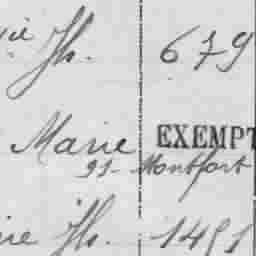 Jh. 679
Marie EXEMPT
91 - Montfort
Jh. 1451